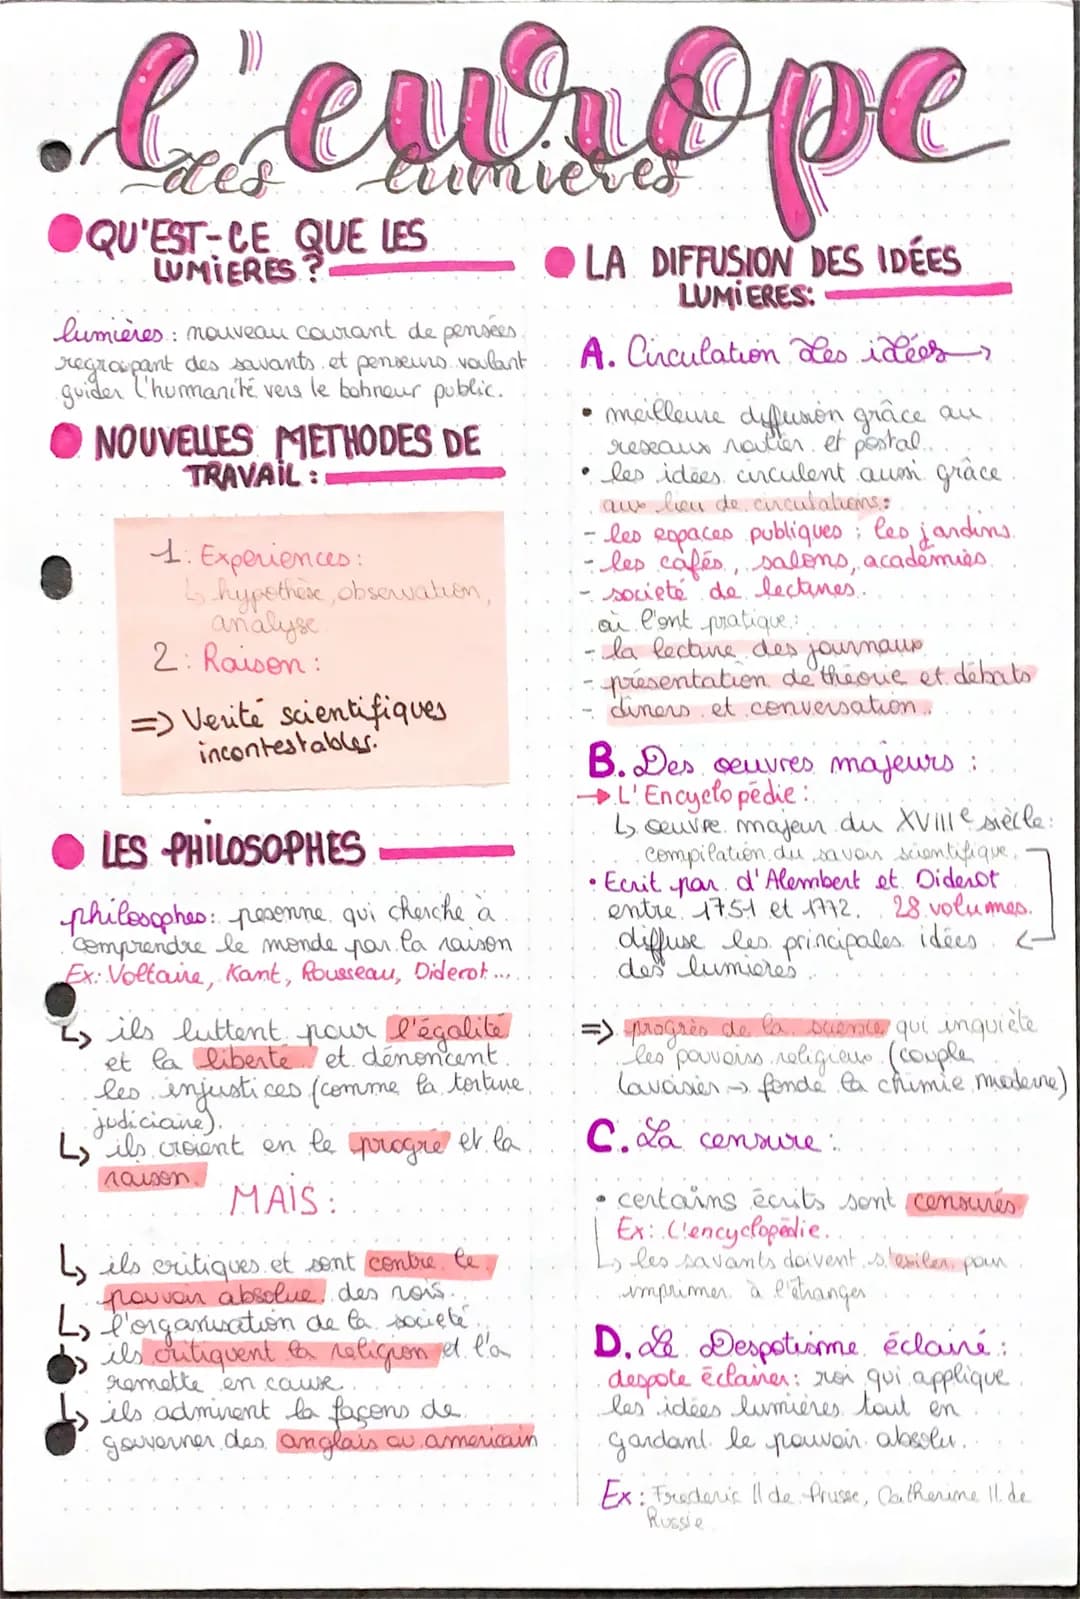 l'europe
des lumières
QU'EST-CE QUE LES
LUMIERES ?
lumières : nouveau courant de pensées
regroupant des savants et penseurs voulant
guider l'humanité vers le bohneur public.
NOUVELLES METHODES DE
TRAVAIL :
1. Experiences :
↳ hypothèse, observation,
analyse
2 : Raison :
=> Verité scientifiques
incontestables.
LES PHILOSOPHES
philosophes : pesonne qui cherche à
comprendre le monde par la raison
Ex : Voltaire, Kant, Rousseau, Diderot...
↳ ils luttent pour l'égalité
et la liberté et dénoncent
les injustices (comme la torture
judiciaire).
↳ ils croient en le progré et la
raison.
MAIS :
↳ ils critiques et sont contre le
pouvoir absolue des rois.
↳ l'organisation de la societé
↳ ils critiquent la religion et l'a
remette en cause.
↳ ils admirent la façons de
gouverner des anglais ou americain
LA DIFFUSION DES IDÉES
LUMIERES :
A. Circulation des idées →
• meilleure diffusion grâce au
reseaux routier et postal.
• les idées circulent aussi grâce
aux lieu de circulations :
- les espaces publiques : les jardins.
- les cafés, salons, académies
- societé de lectures.
où l'ont pratique :
- la lecture des journaux
- présentation de théorie et débats
- diners et conversation.
B. Des œuvres majeurs :
→ L'Encyclopédie :
↳ œuvre majeur du XVIIIe siècle :
compilation du savoir scientifique.
• Ecrit par d'Alembert et Diderot
entre 1751 et 1772. 28 volumes.
diffuse les principales idées
des lumieres
=> progrès de la science qui inquiète
les pouvoirs religieux (couple
Lavoisier → fonde la chimie moderne)
C. La censure :
• certains écrits sont censurés
Ex : L'encyclopédie.
↳ les savants doivent s'exiler pour
imprimer à l'étranger
D. Le Despotisme éclairé :
despote éclairer : roi qui applique
les idées lumières tout en
gardant le pouvoir absolu.
Ex : Frederic II de Prusse, Catherine II de
Russie